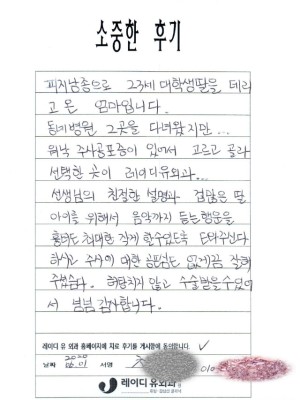 소중한 후기
피지낭종으로 23세 대학생딸을 데리
고 온 엄마입니다.
동네병원 2곳을 다녀왔지만...
워낙 주사공포증이 있어서 고르고 골라
선택한 곳이 레이디유외과..
선생님의 친절한 설명과 겁많은 딸
아이를 위해서 음악까지 듣는행운을
흉터도 최대한 작게 할수있도록 도와주신다
하시고 주사에 대한 공포감도 없게끔 잘해
주셨습니다. 해당치 않고 수술받을수있어
서 넘넘 감사합니다.
레이디 유 외과 홈페이지에 치료 후기를 게시함에 동의합니다. ✓
날짜 2020 06.01 서명
010
레이디유외과